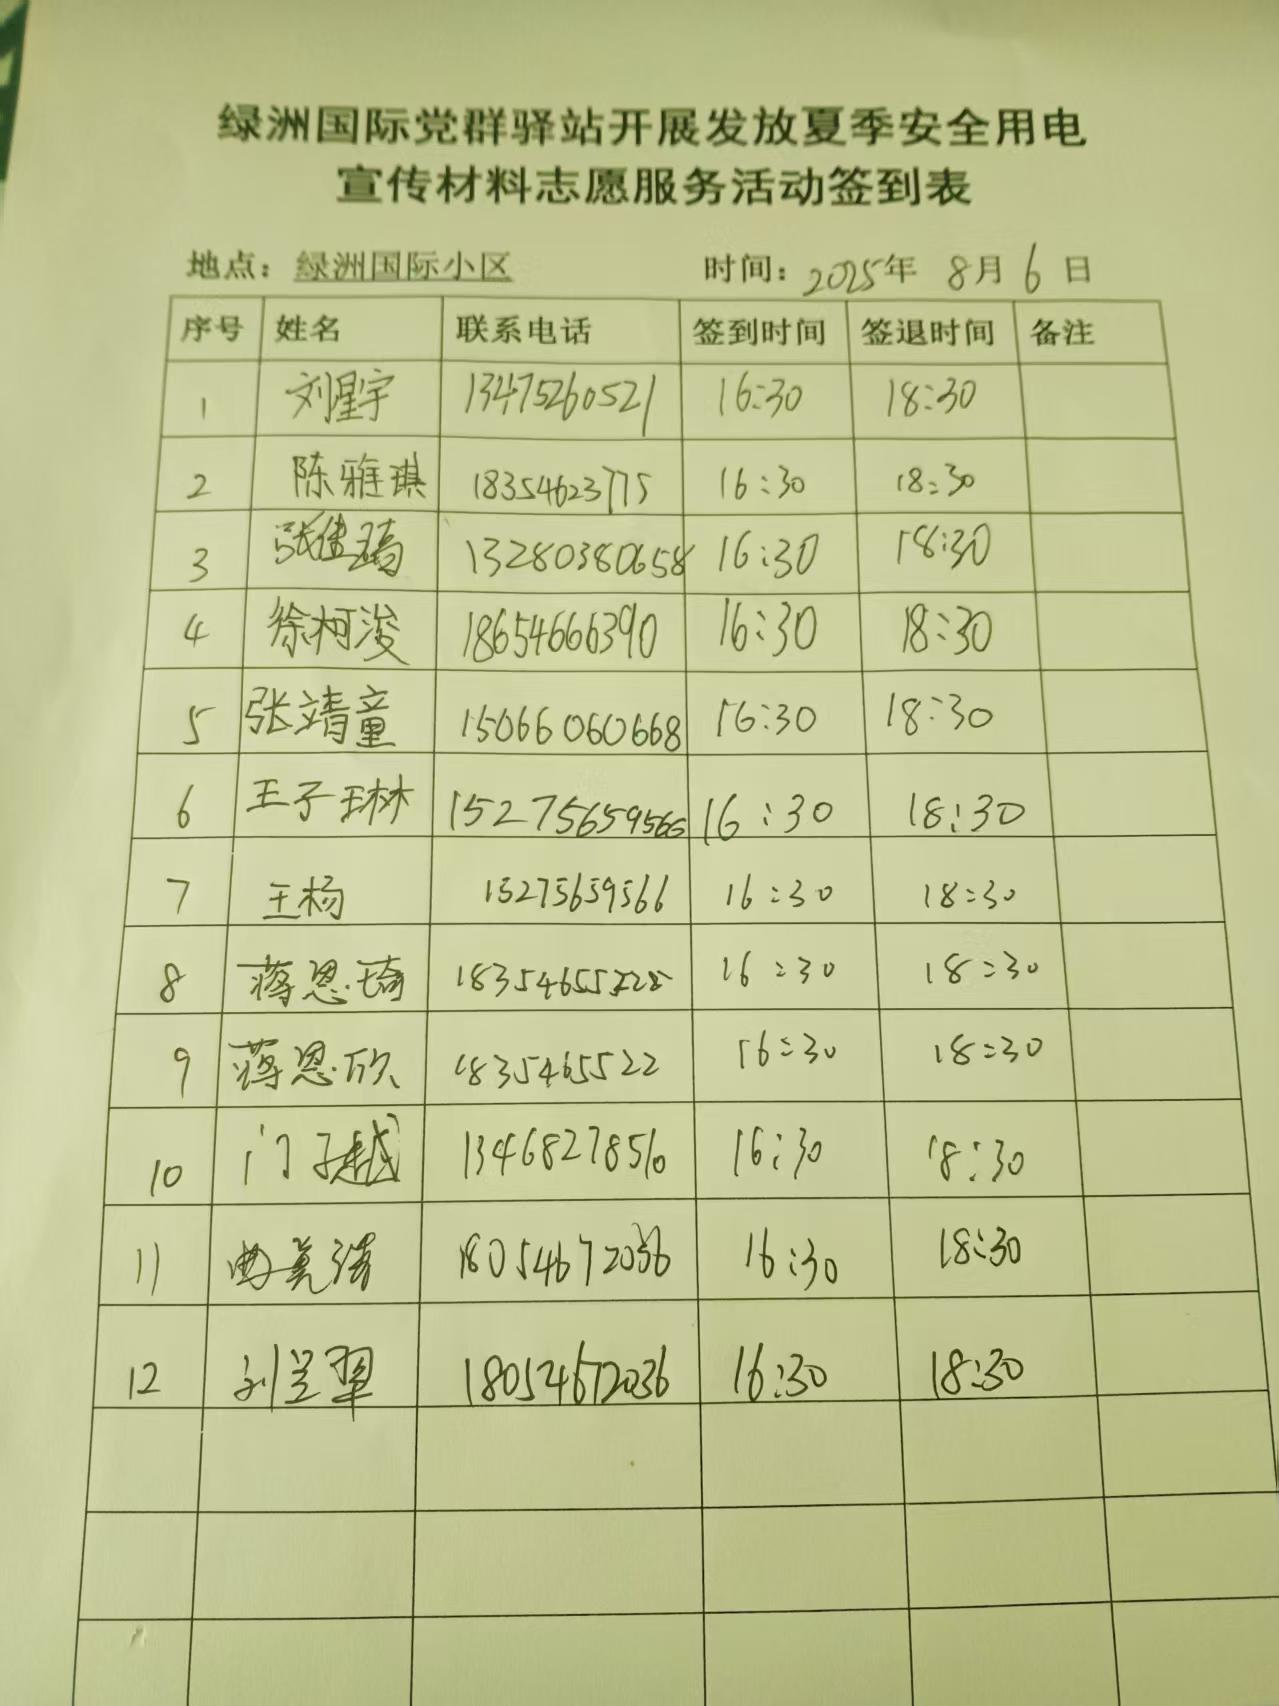 绿洲国际党群驿站开展发放夏季安全用电
宣传材料志愿服务活动签到表
地点：绿洲国际小区 时间：2025年 8月 6日
序号 姓名 联系电话 签到时间 签退时间 备注
1 刘星宇 13475260521 16:30 18:30
2 陈雅琪 18354623775 16:30 18:30
3 张佳 13280380658 16:30 18:30
4 徐柯浚 18654666390 16:30 18:30
5 张靖童 15066060668 16:30 18:30
6 王子琳 15275659566 16:30 18:30
7 王杨 15275659566 16:30 18:30
8 蒋恩琦 16:30 18:30
9 蒋恩欣 1835465522 16:30 18:30
10 门子越 13468278510 16:30 18:30
11 曲 18054672036 16:30 18:30
12 刘 18054672036 16:30 18:30